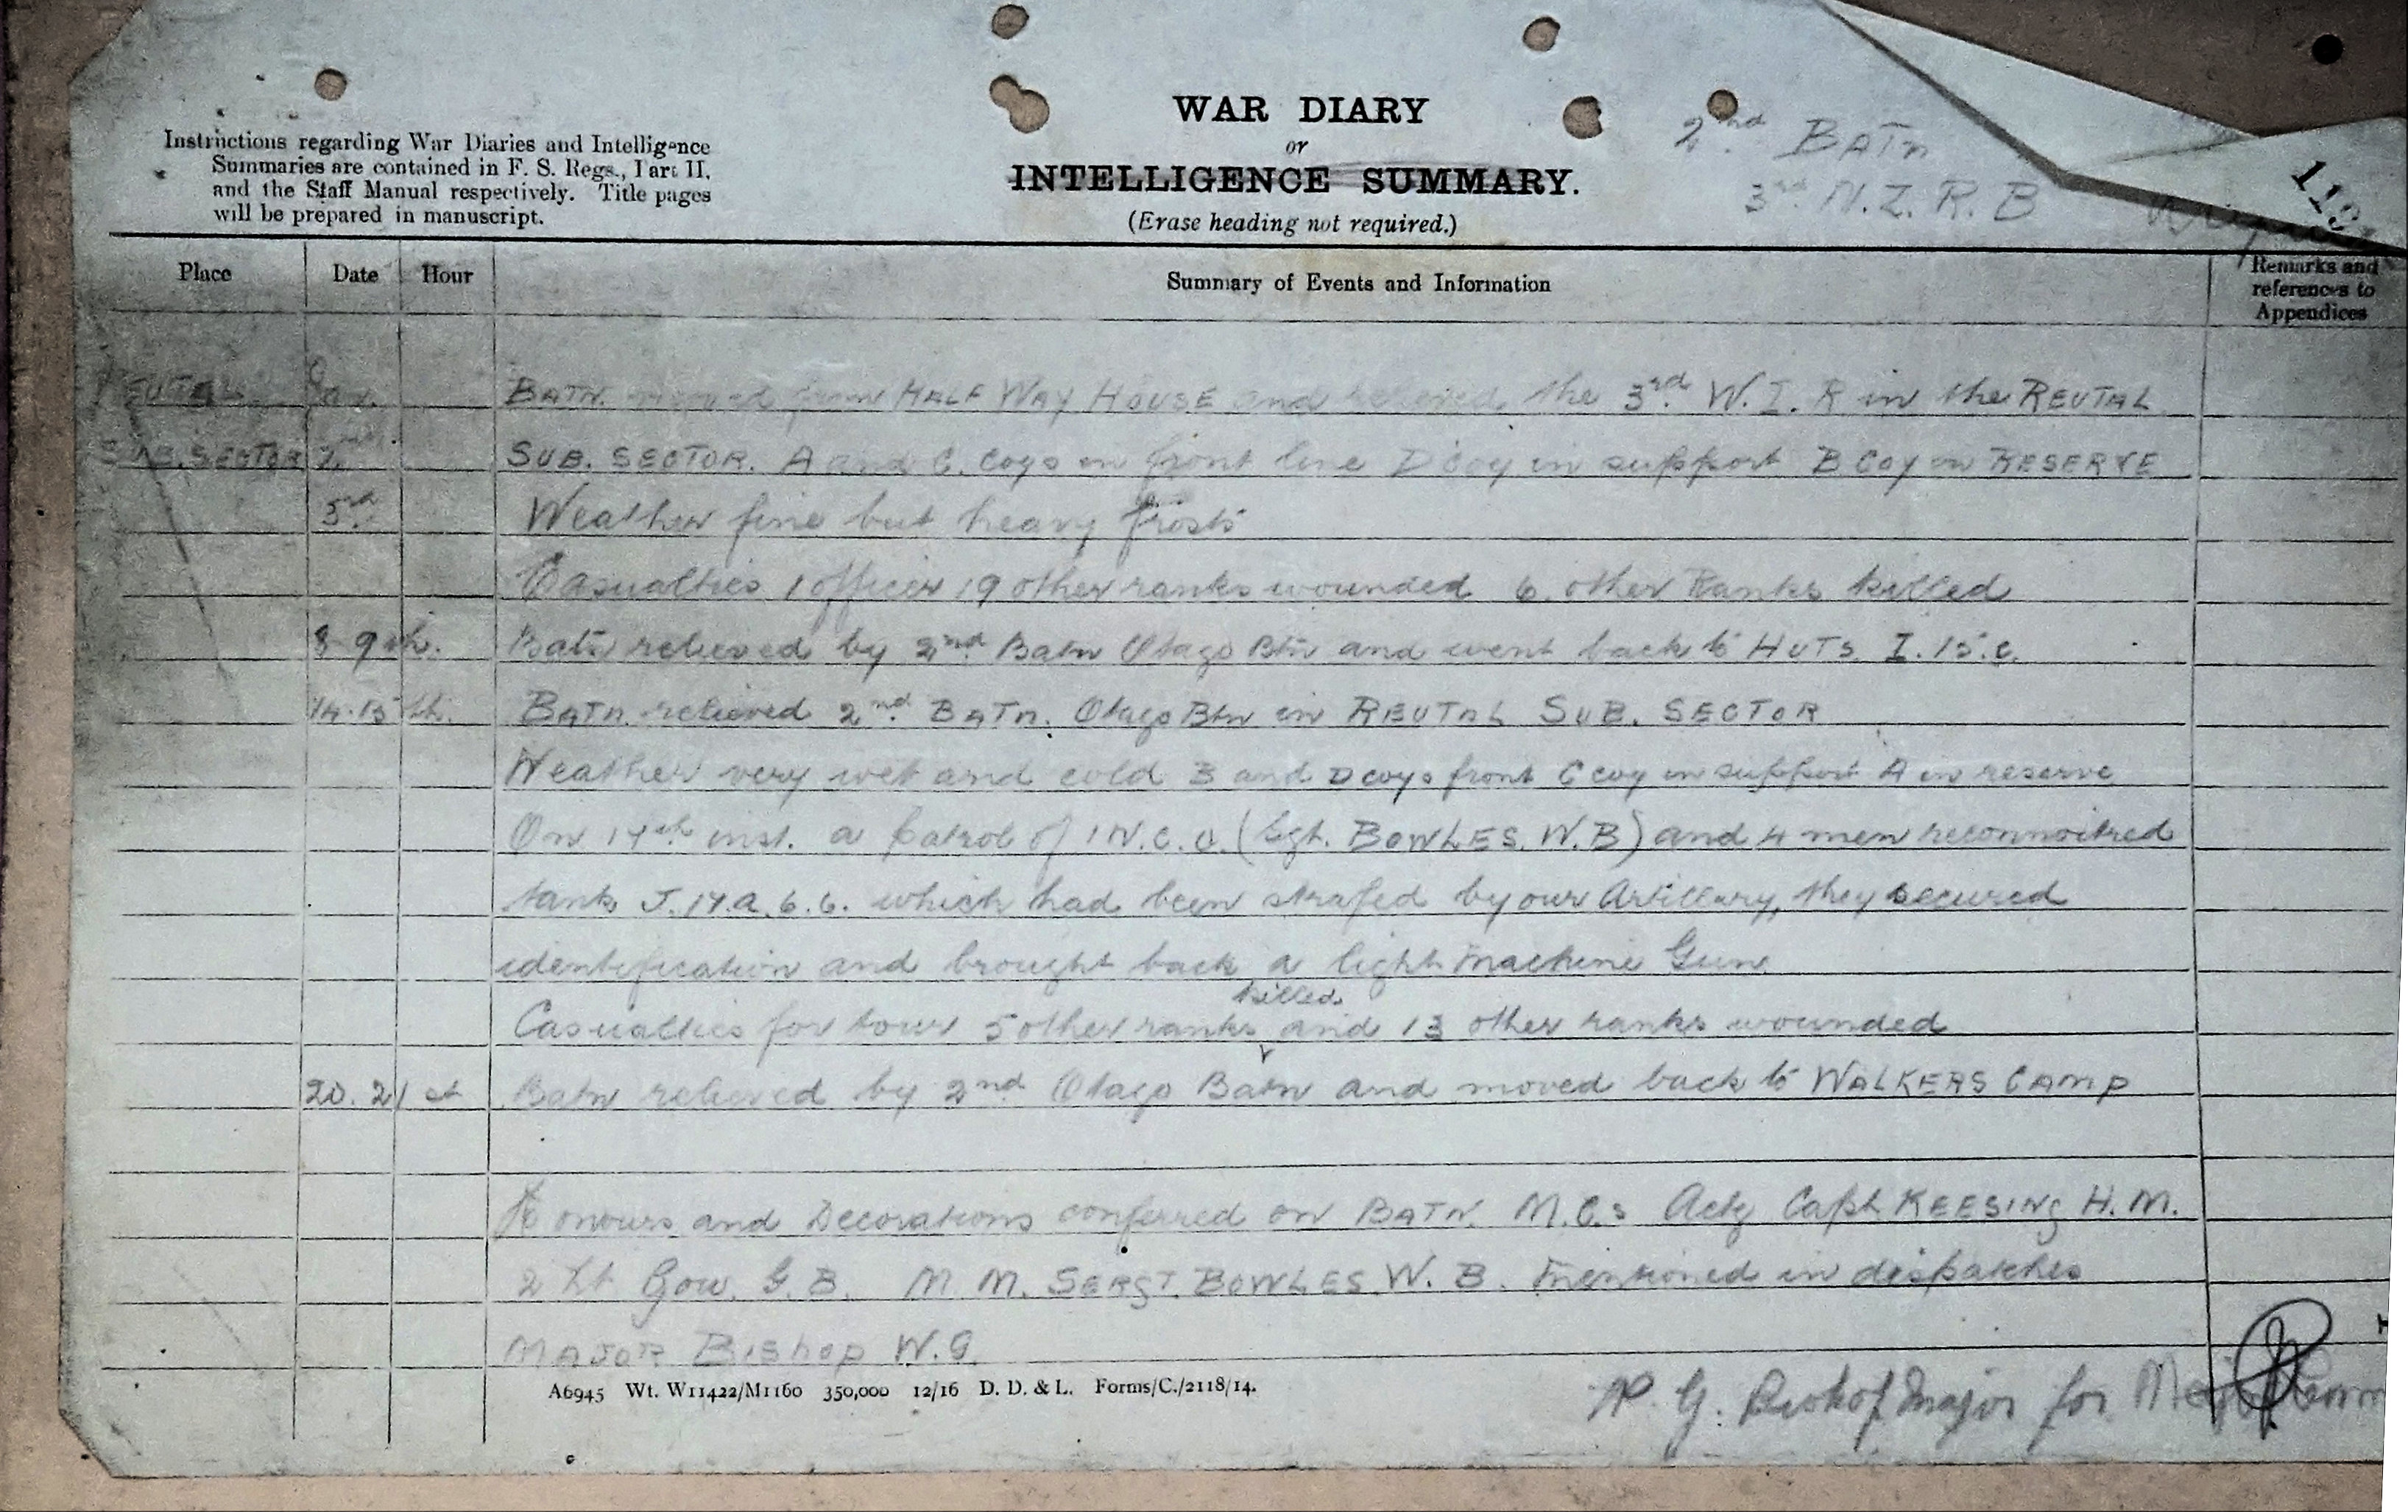 Instructions regarding War Diaries and Intelligence
Summaries are contained in F. S. Regs., Part II.
and the Staff Manual respectively. Title pages
will be prepared in manuscript.
WAR DIARY
or
INTELLIGENCE SUMMARY.
(Erase heading not required.)
2nd BATN
3rd N.Z.R.B
119
Place Date Hour Summary of Events and Information Remarks and references to Appendices
REUTAL BATN. moved from HALF WAY HOUSE and relieved the 3rd W.I.R in the REUTAL
SUB.SECTOR SUB. SECTOR. A and C. Coys in front line D Coy in support B Coy in RESERVE
3rd Weather fine but heavy frosts
Casualties 1 officer 19 other ranks wounded 6 other Ranks killed
8 9th. Batn relieved by 2nd Batn Otago Btn and went back to HUTS. I.15.c.
14.15th. BATN. relieved 2nd BATN. Otago Btn in REUTAL SUB. SECTOR
Weather very wet and cold B and D coys front C coy in support A in reserve
On 17th inst. a Patrol of 1 N.C.O. (Sgt. BOWLES. W.B) and 4 men reconnoitred
tank J.17.a.6.6. which had been strafed by our Artillery, they secured
identification and brought back a light Machine Gun
Casualties for tour 5 other ranks killed and 13 other ranks wounded
20.21st Batn relieved by 2nd Otago Batn and moved back to WALKERS CAMP
Honours and Decorations conferred on BATN. M.C.s Actg Capt KEESING H.M.
2 Lt Gow. G.B. M.M. SERGT. BOWLES. W.B. Mentioned in dispatches
MAJOR BISHOP W.G.
A6945 Wt. W11422/M1160 350,000 12/16 D. D. & L. Forms/C./2118/14.
W.G. Bishop Major for